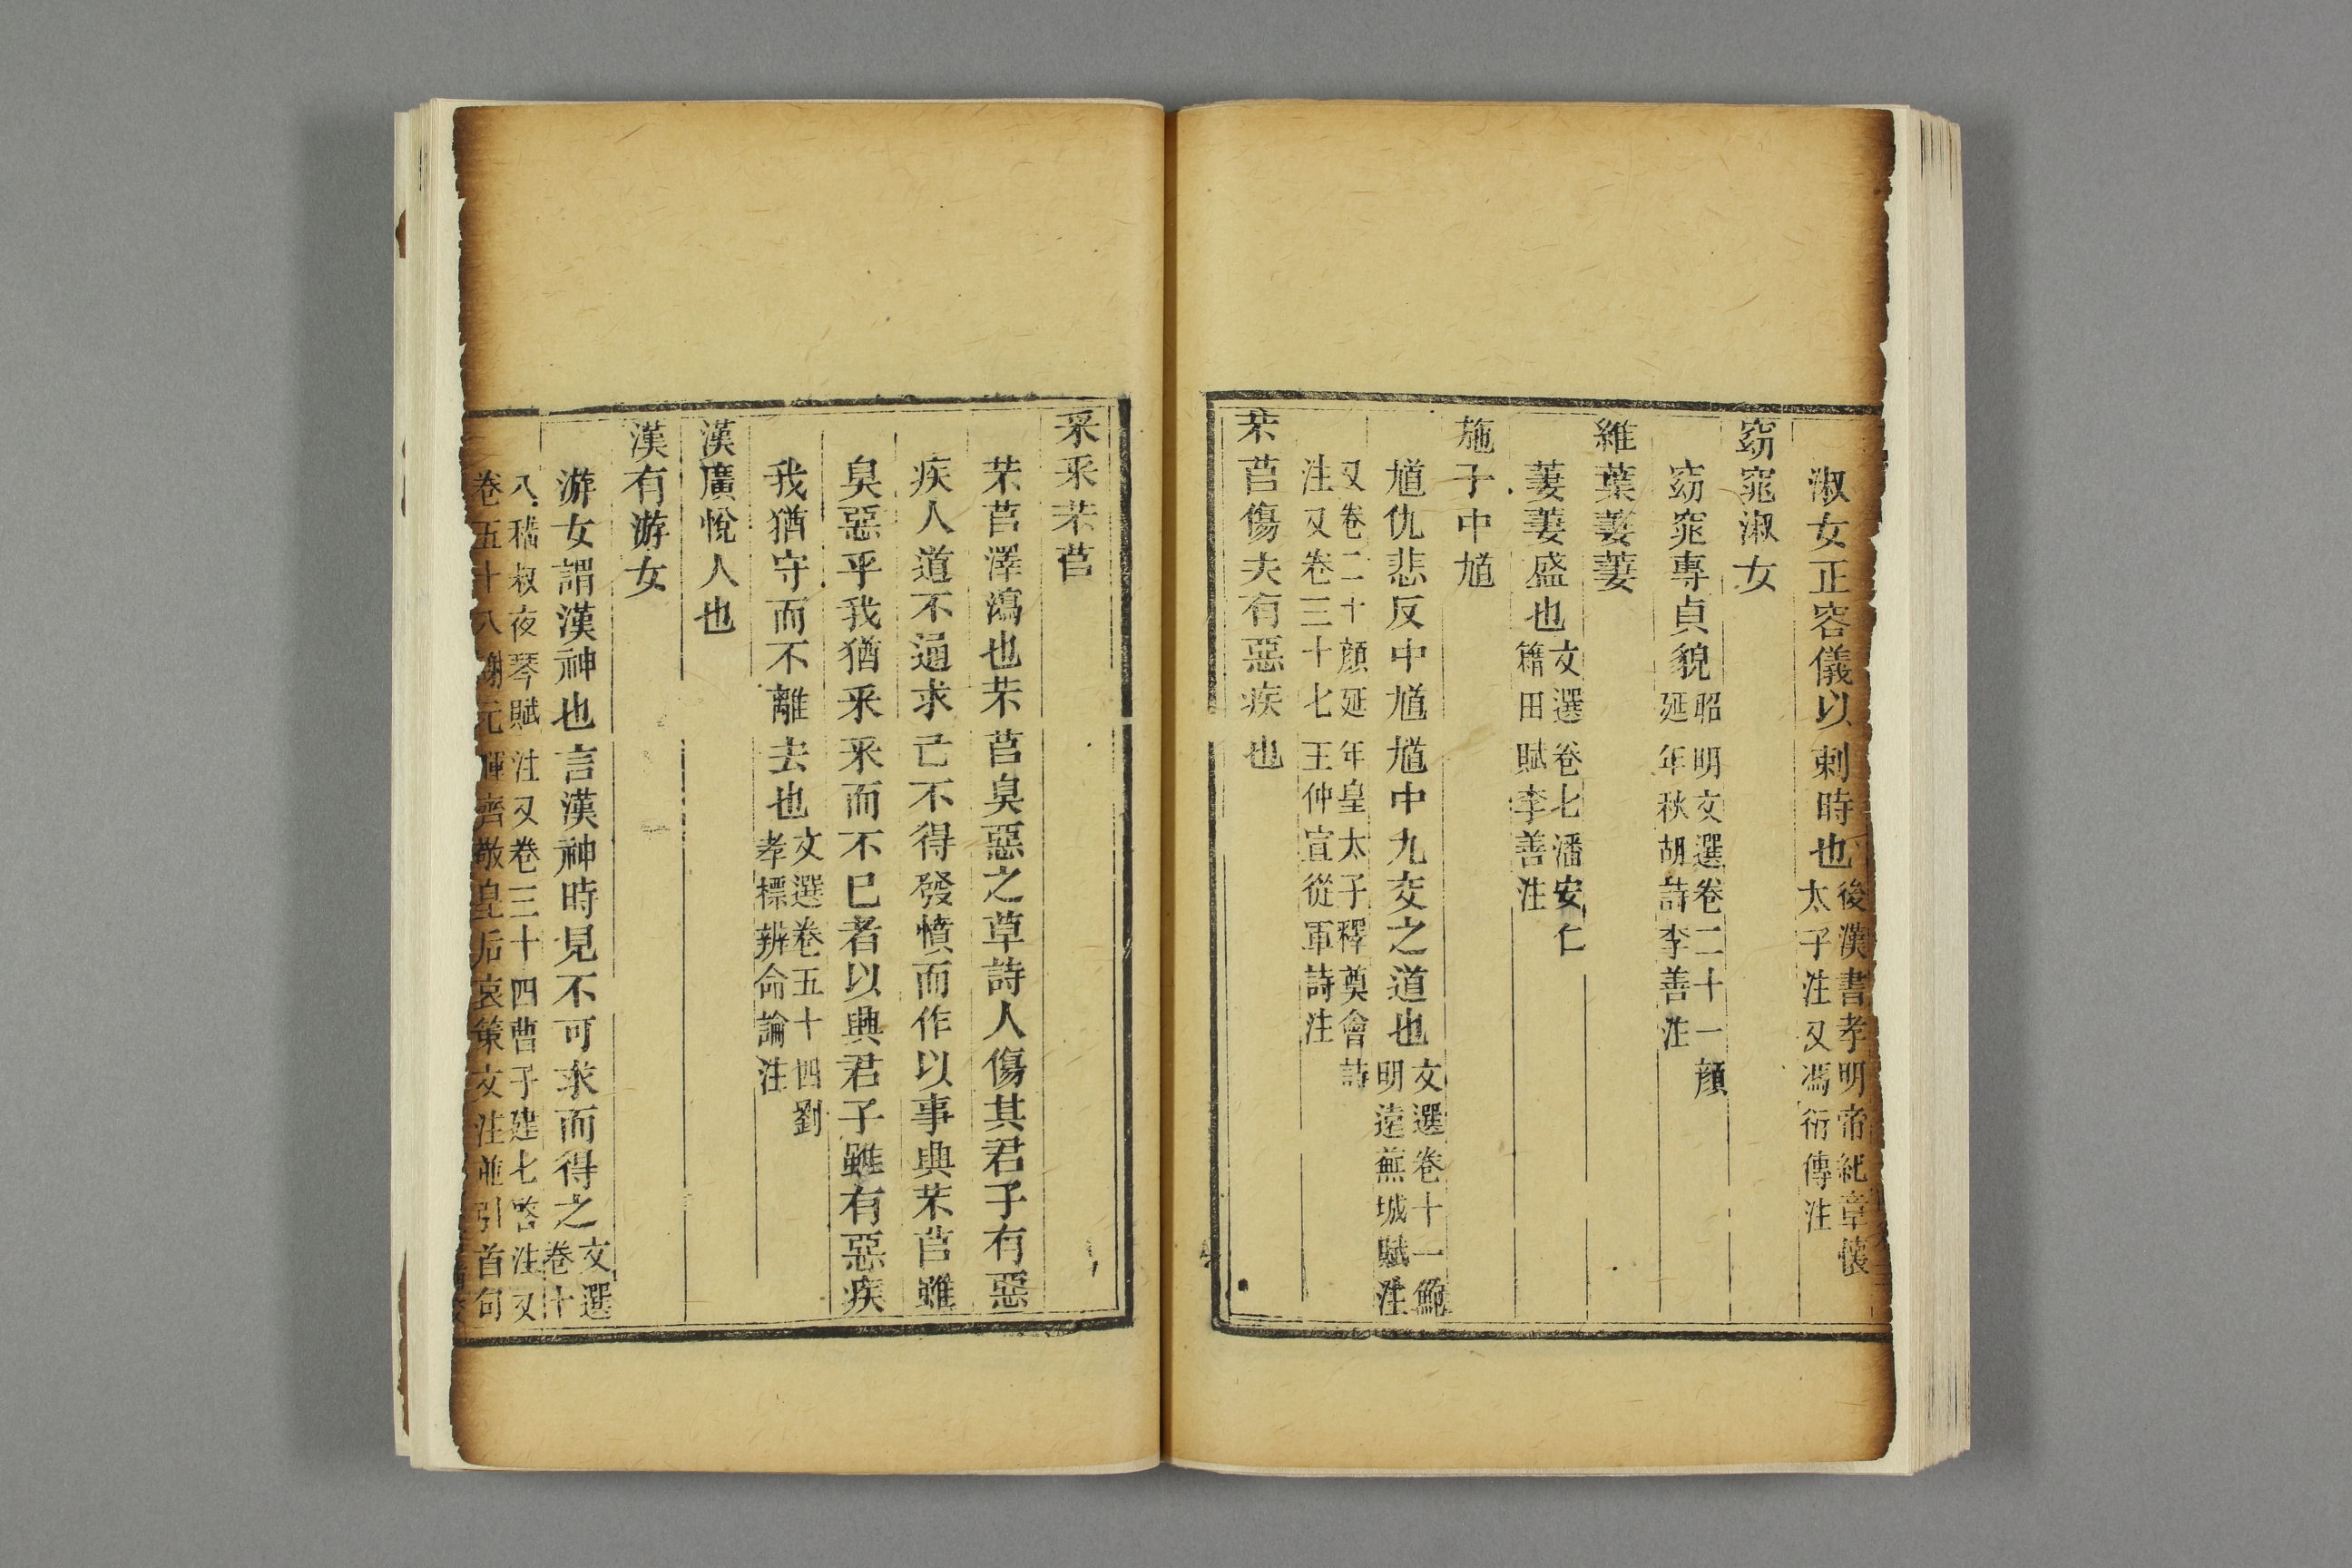 淑女正容儀以刺時也後漢書孝明帝紀章懷
太子注又馮衍傳注
窈窕淑女
窈窕專貞貌昭明文選卷二十一顏
延年秋胡詩李善注
維葉萋萋
萋萋盛也文選卷七潘安仁
籍田賦李善注
施于中馗
馗仇悲反中馗馗中九交之道也文選卷十一鮑
明遠蕪城賦注
又卷二十顏延年皇太子釋奠會詩
注又卷三十七王仲宣從軍詩注
芣苢傷夫有惡疾也
采采芣苢
芣苢澤瀉也芣苢臭惡之草詩人傷其君子有惡
疾人道不通求已不得發憤而作以事興芣苢雖
臭惡乎我猶采采而不已者以興君子雖有惡疾
我猶守而不離去也文選卷五十四劉
孝標辨命論注
漢廣悅人也
漢有游女
游女謂漢神也言漢神時見不可求而得之文選
卷十
八嵇叔夜琴賦注又卷三十四曹子建七啓注又
卷五十八謝元暉齊敬皇后哀策文注並引首句